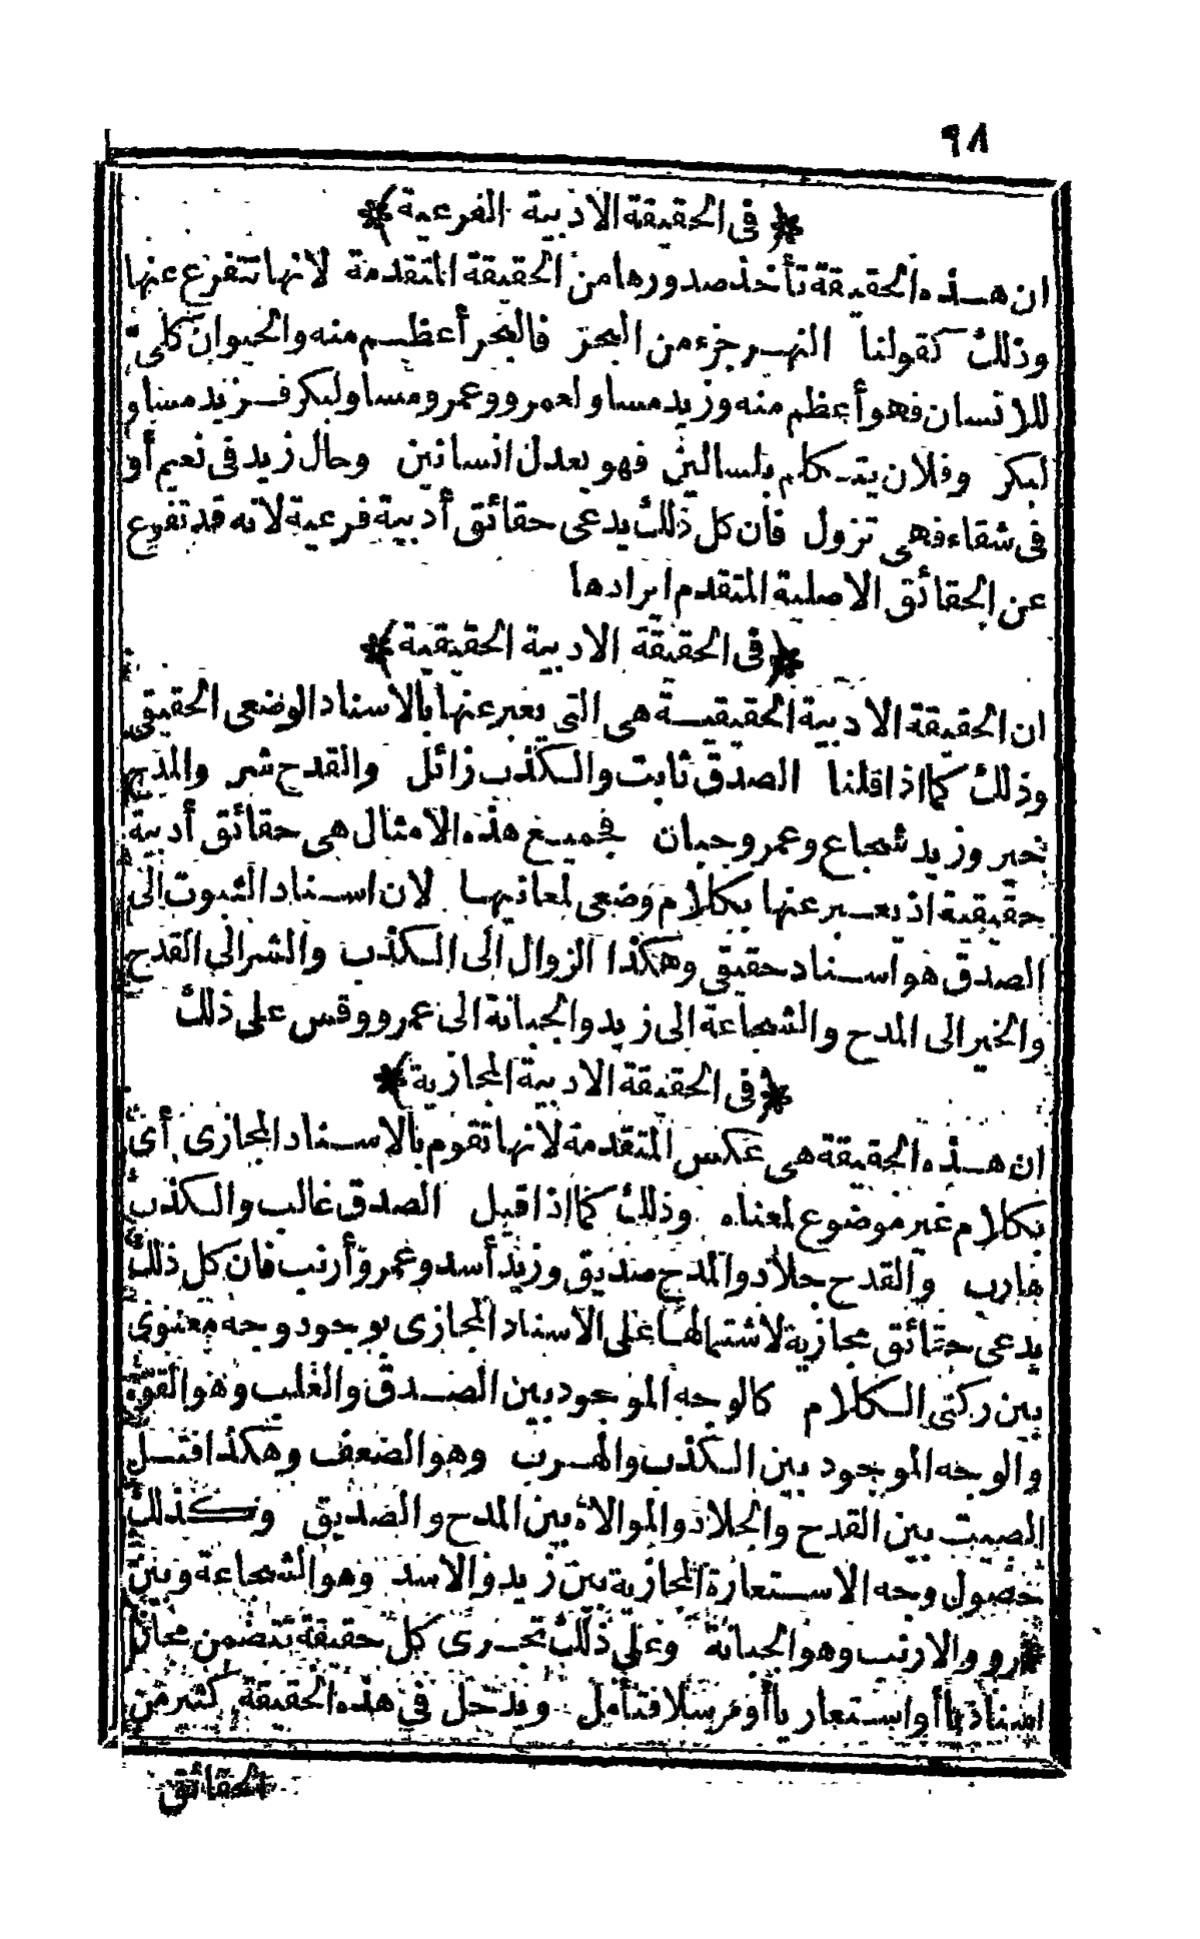 ٩٨
﴿ فى الحقيقة الادبية الفرعية ﴾
ان هذه الحقيقة تأخذ صدورها من الحقيقة المتقدمة لانها تتفرع عنها
وذلك كقولنا النهر جزء من البحر فالبحر أعظم منه والحيوان كلى
للانسان فهو أعظم منه وزيد مساو لعمرو وعمرو مساو لبكر فزيد مساو
لبكر وفلان يتكلم بلسانين فهو يعدل انسانين وحال زيد فى نعيم أو
فى شقاء فهى تزول فان كل ذلك يدعى حقائق أدبية فرعية لانه قد تفرع
عن الحقائق الاصلية المتقدم ايرادها
﴿ فى الحقيقة الادبية الحقيقية ﴾
ان الحقيقة الادبية الحقيقية هى التى يعبر عنها بالاسناد الوضعى الحقيقى
وذلك كما اذا قلنا الصدق ثابت والكذب زائل والقدح شر والمدح
خير وزيد شجاع وعمرو جبان فجميع هذه الامثال هى حقائق أدبية
حقيقية اذ يعبر عنها بكلام وضعى لمعانيها لان اسناد الثبوت الى
الصدق هو اسناد حقيقى وهكذا الزوال الى الكذب والشر الى القدح
والخير الى المدح والشجاعة الى زيد والجبانة الى عمرو وقس على ذلك
﴿ فى الحقيقة الادبية المجازية ﴾
ان هذه الحقيقة هى عكس المتقدمة لانها تقوم بالاسناد المجازى أى
بكلام غير موضوع لمعناه وذلك كما اذا قيل الصدق غالب والكذب
هارب والقدح جلاد والمدح صديق وزيد أسد وعمرو أرنب فان كل ذلك
يدعى حقائق مجازية لاشتمالها على الاسناد المجازى بوجود وجه معنوى
بين ركنى الكلام كالوجه الموجود بين الصدق والغلب وهو القوة
والوجه الموجود بين الكذب والهرب وهو الضعف وهكذا فتل
الصيت بين القدح والجلاد والموالاة بين المدح والصديق وكذلك
حصول وجه الاستعارة المجازية بين زيد والاسد وهو الشجاعة وبين
عمرو والارنب وهو الجبانة وعلى ذلك تجرى كل حقيقة تتضمن مجازا
اسناديا أو استعاريا أو مرسلا فتأمل ويدخل فى هذه الحقيقة كثير من
الحقائق